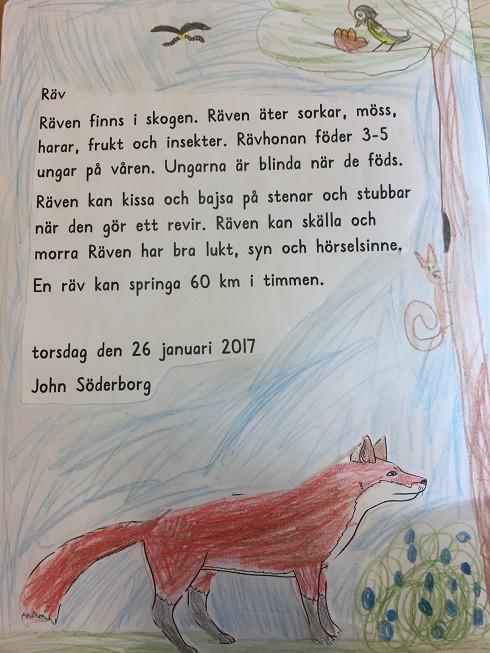 Räv
Räven finns i skogen. Räven äter sorkar, möss,
harar, frukt och insekter. Rävhonan föder 3-5
ungar på våren. Ungarna är blinda när de föds.
Räven kan kissa och bajsa på stenar och stubbar
när den gör ett revir. Räven kan skälla och
morra Räven har bra lukt, syn och hörselsinne.
En räv kan springa 60 km i timmen.
torsdag den 26 januari 2017
John Söderborg